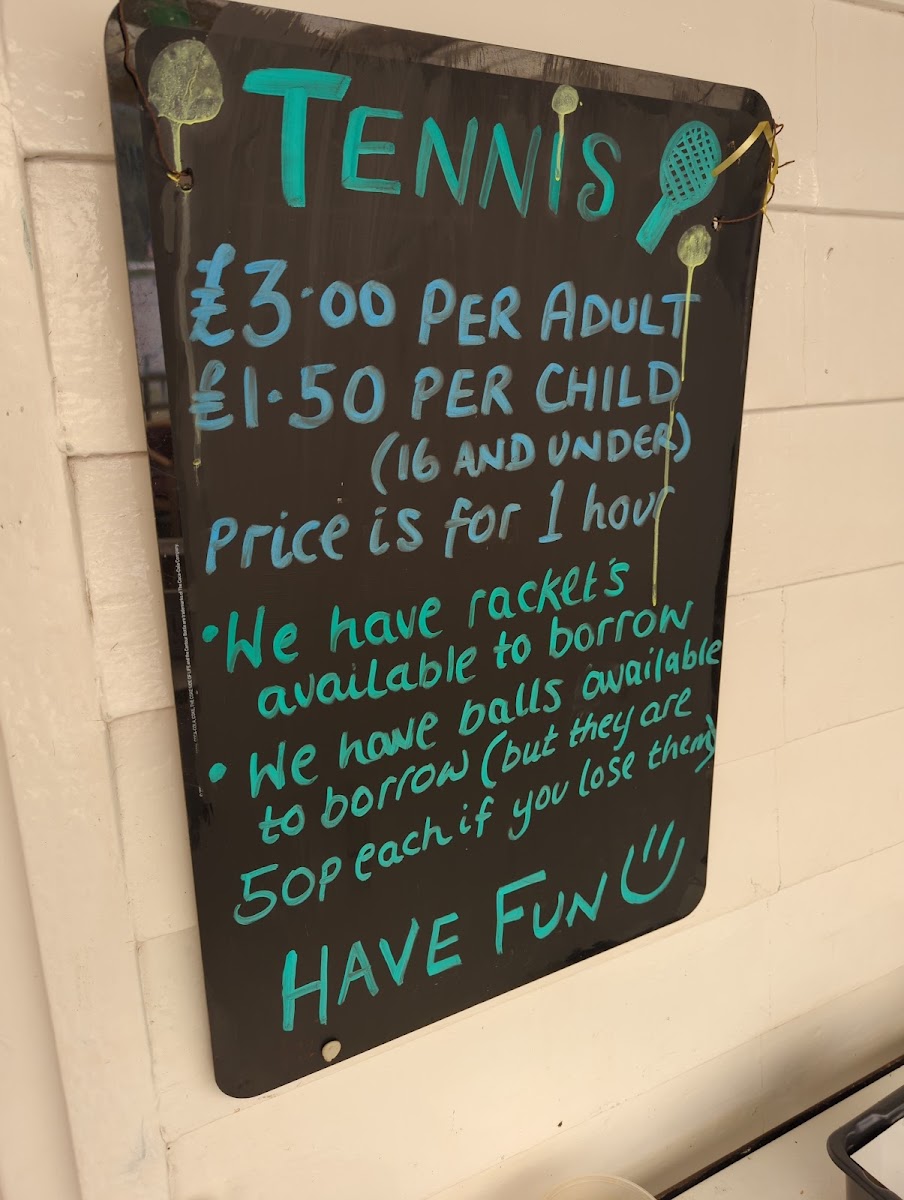 TENNIS
£3.00 PER ADULT
£1.50 PER CHILD
(16 AND UNDER)
Price is for 1 hour
• We have racket's
available to borrow
• We have balls available
to borrow (but they are
50p each if you lose them)
HAVE FUN